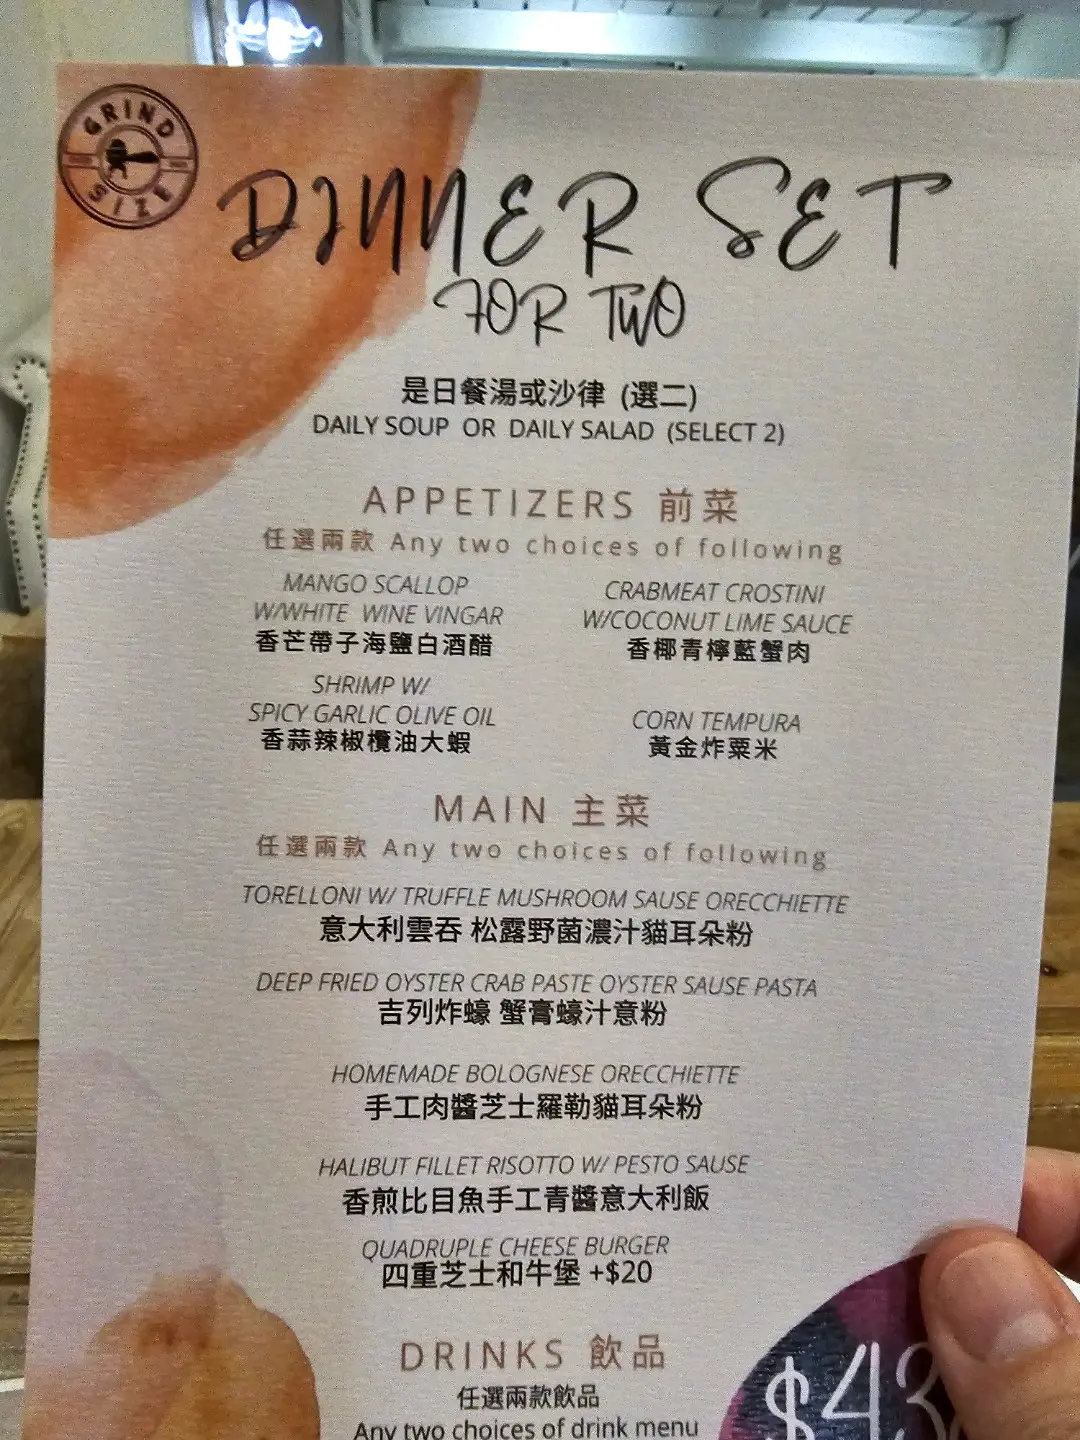 GRIND
SIZE
DINNER SET
FOR TWO
是日餐湯或沙律 (選二)
DAILY SOUP OR DAILY SALAD (SELECT 2)
APPETIZERS 前菜
任選兩款 Any two choices of following
MANGO SCALLOP
W/WHITE WINE VINGAR
香芒帶子海鹽白酒醋
CRABMEAT CROSTINI
W/COCONUT LIME SAUCE
香椰青檸藍蟹肉
SHRIMP W/
SPICY GARLIC OLIVE OIL
香蒜辣椒欖油大蝦
CORN TEMPURA
黃金炸粟米
MAIN 主菜
任選兩款 Any two choices of following
TORELLONI W/ TRUFFLE MUSHROOM SAUSE ORECCHIETTE
意大利雲吞 松露野菌濃汁貓耳朵粉
DEEP FRIED OYSTER CRAB PASTE OYSTER SAUSE PASTA
吉列炸蠔 蟹膏蠔汁意粉
HOMEMADE BOLOGNESE ORECCHIETTE
手工肉醬芝士羅勒貓耳朵粉
HALIBUT FILLET RISOTTO W/ PESTO SAUSE
香煎比目魚手工青醬意大利飯
QUADRUPLE CHEESE BURGER
四重芝士和牛堡 +$20
DRINKS 飲品
任選兩款飲品
Any two choices of drink menu